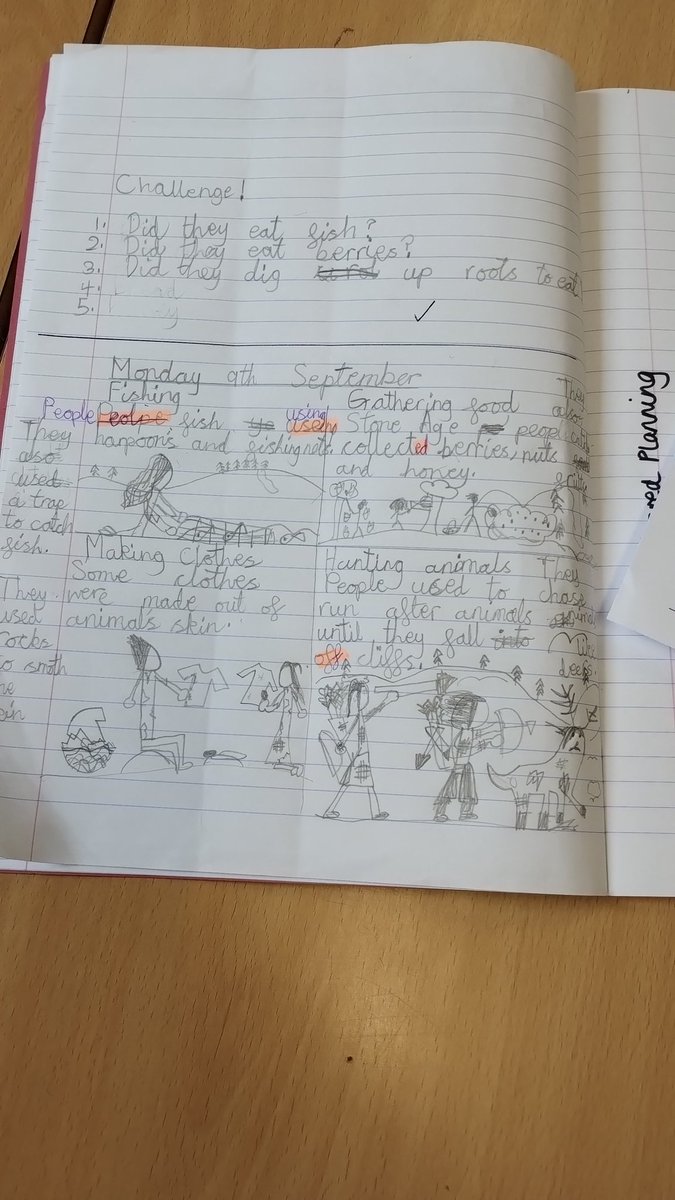 Challenge!
1. Did they eat fish?
2. Did they eat berries?
3. Did they dig up roots to eat
4.
5.
Monday 9th September
Fishing
People Peolpe fish using useing
harpoons and fishing nets.
They
also
used
a trap
to catch
fish.
Gathering food
Stone Age peopel
collected berries, nuts
and honey.
They
also
Making Clothes
Some clothes
were made out of
animals skin.
They
used
rocks
to smoth
Hunting animals
People used to
run after animals
until they fall into
off cliffs.
They
chase